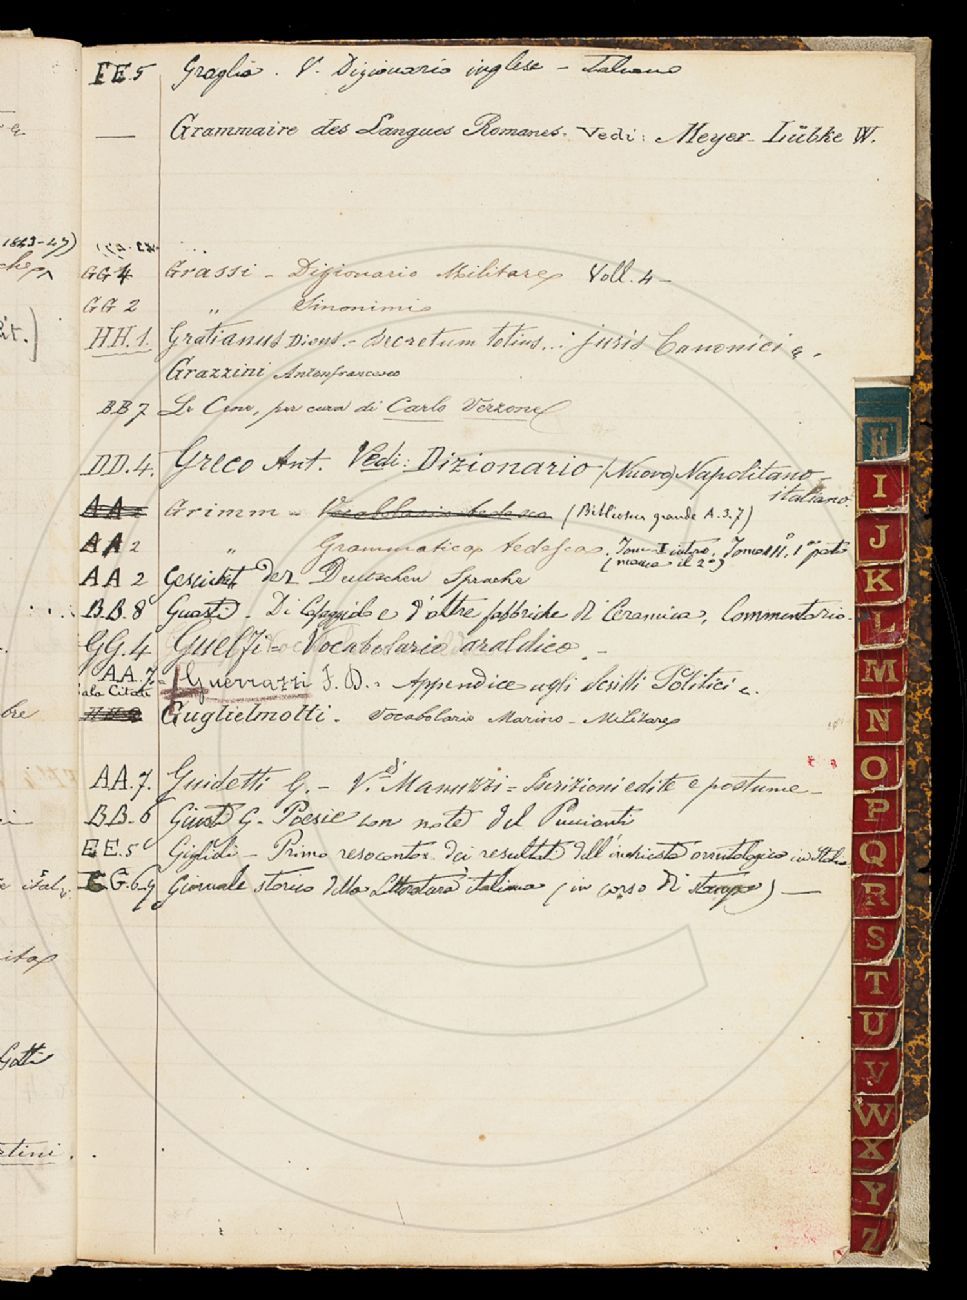 EE.5 Graglia. V. Dizionario inglese - italiano
— Grammaire des Langues Romanes. Vedi: Meyer-Lübke W.
GG 4 Grassi - Dizionario Militare Voll. 4 -
GG 2 „ Sinonimi
HH.1. Gratianus Divus. - Decretum totius... juris Canonici
Grazzini Antonfrancesco
BB7 Le Cene, per cura di Carlo Verzone
DD.4. Greco Ant. Vedi: Dizionario (Nuovo) Napolitano-
italiano.
AA Grimm - Vocabolario tedesco (Bibliotech grande A.3.7)
AA 2 „ Grammatica tedesca. Tomo I intro, Tomo III°, 1a parte
(manca il 2°)
AA 2 Geschichte der Deutschen Sprache
BB.8 Guasti. Di Cafaggiolo e d'altre fabbriche di Ceramica, Commentario.
GG.4 Guelfi = Vocabolario araldico. -
AA.7 = Guerrazzi F. D.: Appendice agli Scritti Politici
Sala Citati
HH 2 Guglielmotti. Vocabolario Marino - Militare
AA.7. Guidetti G. - V. di Manuzzi = Iscrizioni edite e postume -
BB.6 Giusti G. Poesie con note del Puccianti
EE.5 Giglioli - Primo resoconto dei resultati dell'inchiesta ornitologica in Italia
GG.6.9 Giornale storico della Letteratura italiana (in corso di stampa) —
H
I
J
K
L
M
N
O
P
Q
R
S
T
U
V
W
X
Y
Z